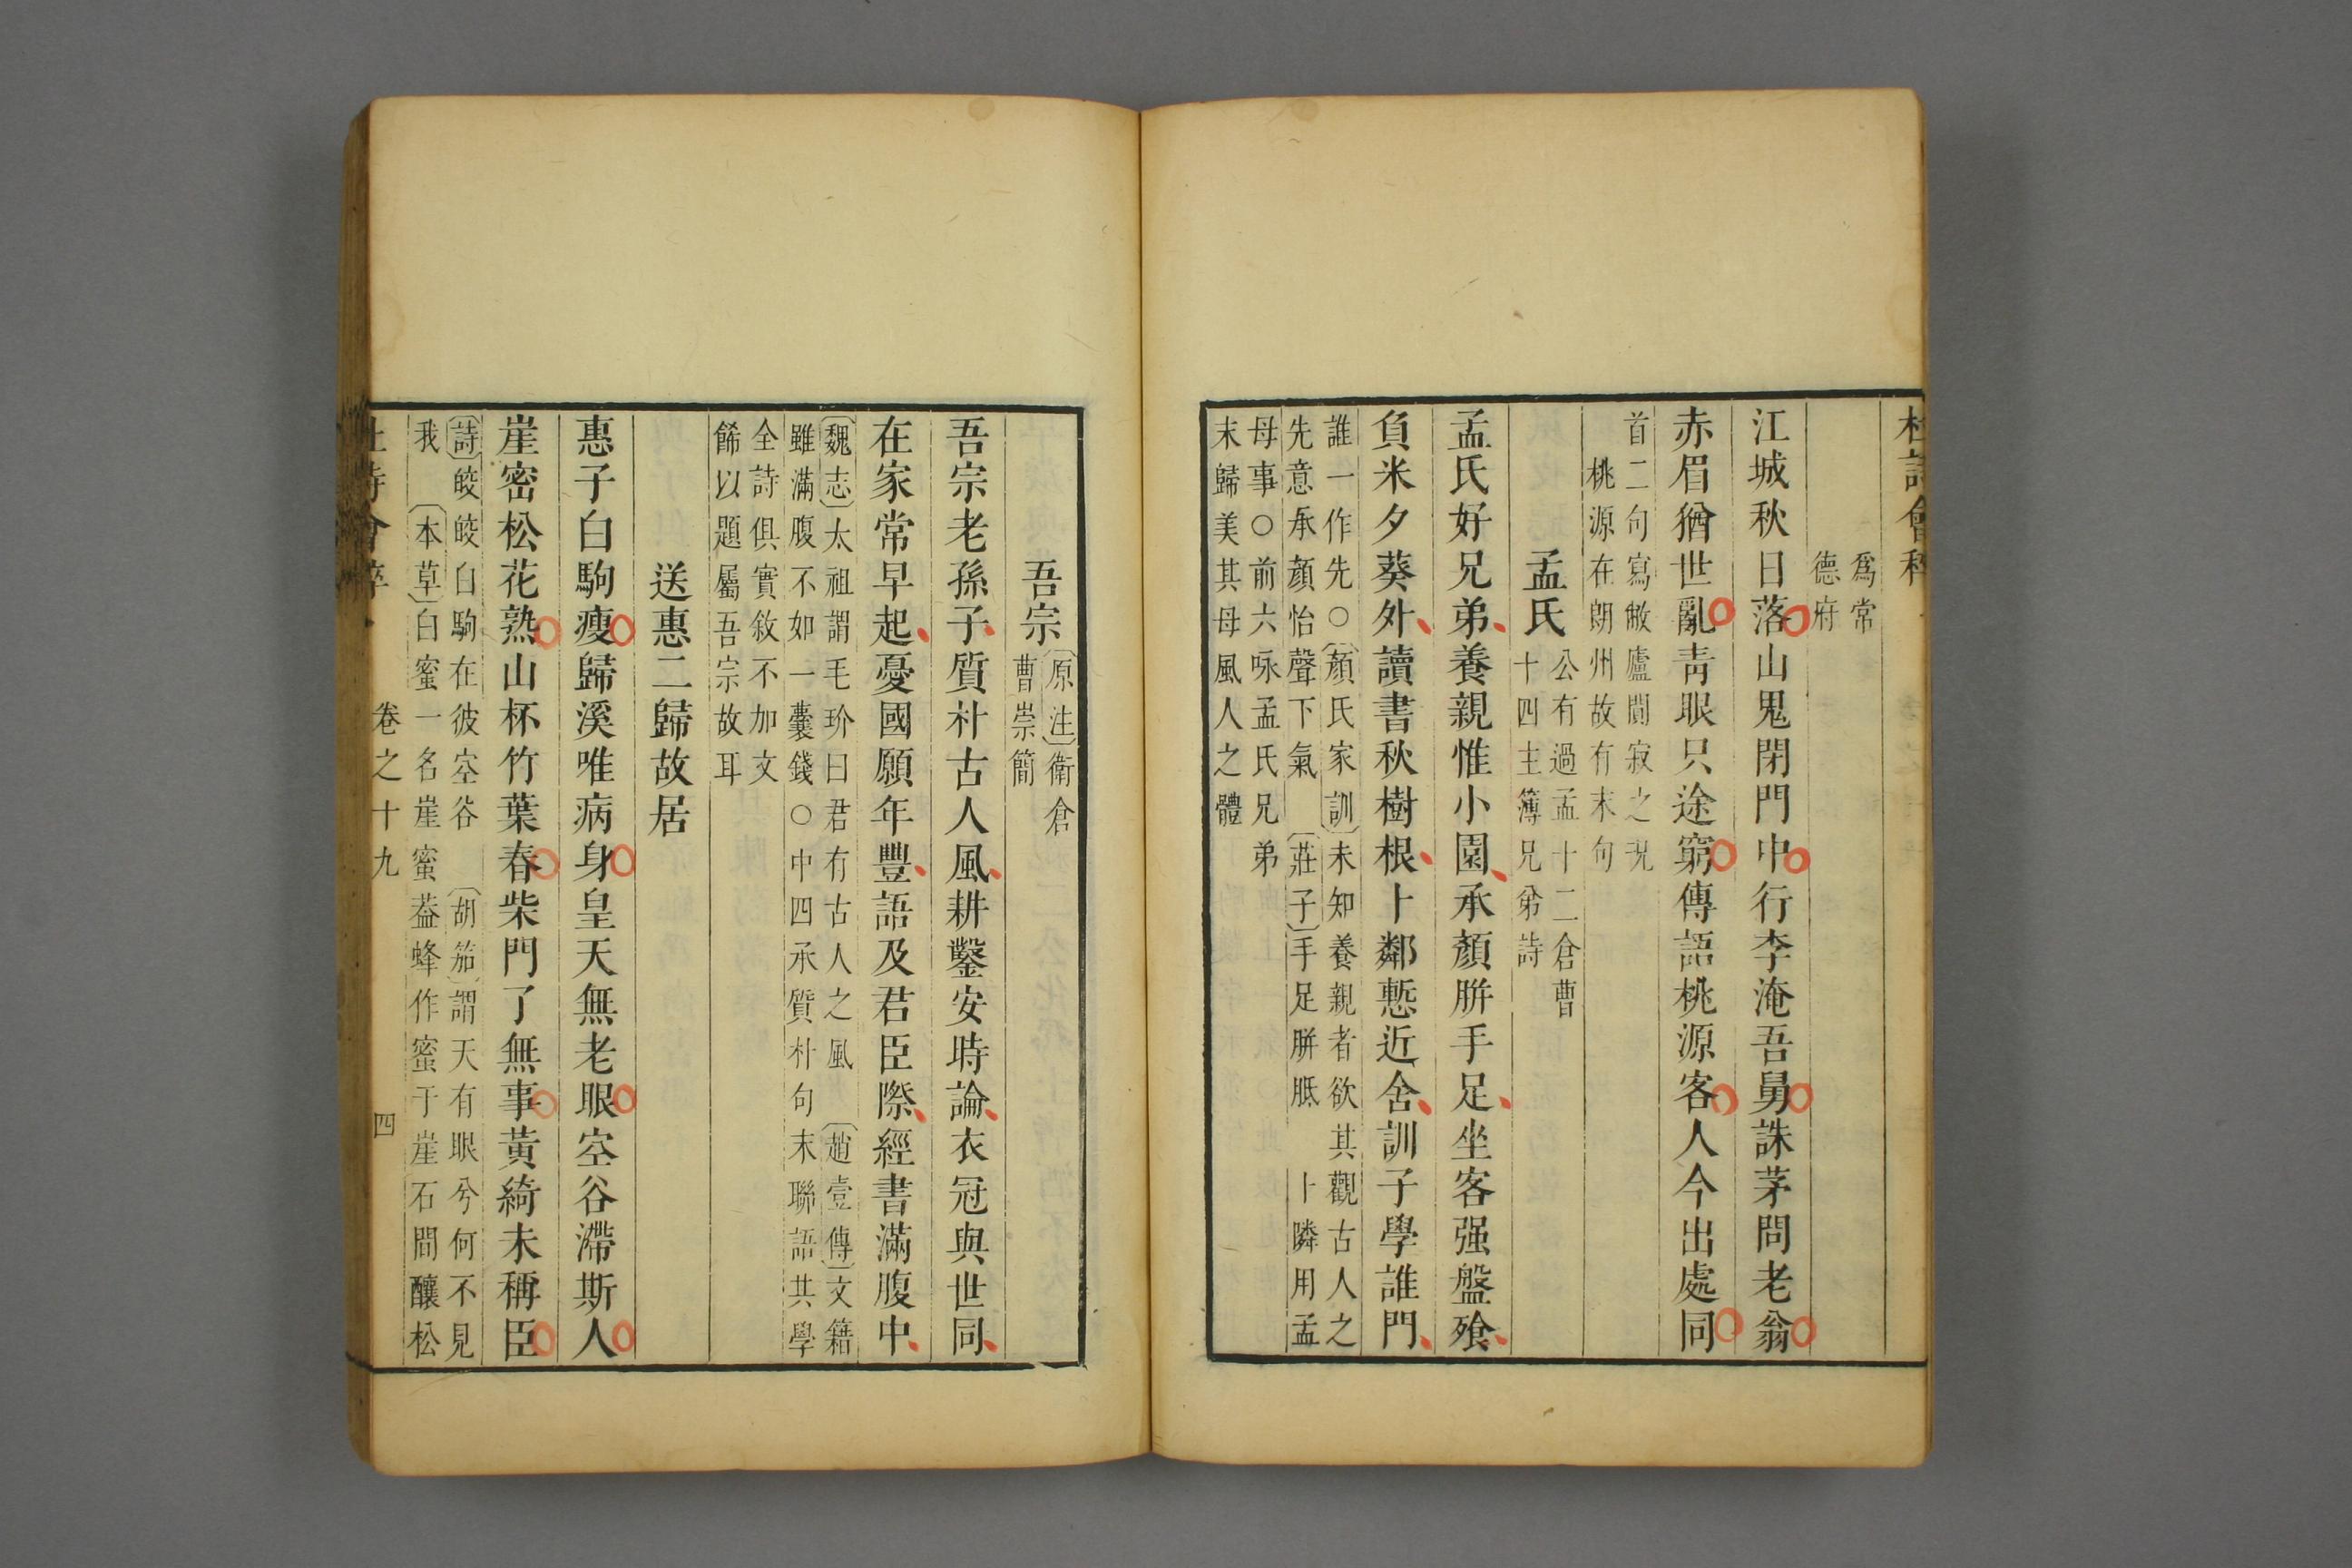 杜詩會稡
爲常
德府
江城秋日落山鬼閉門中行李淹吾舅誅茅問老翁
赤眉猶世亂靑眼只途窮傳語桃源客人今出處同
首二句寫敝廬閴寂之況
桃源在朗州故有末句
孟氏
公有過孟十二倉曹
十四主簿兄弟詩
孟氏好兄弟養親惟小園承顏胼手足坐客强盤飱
負米夕葵外讀書秋樹根卜鄰慙近舍訓子學誰門
誰一作先○〔顏氏家訓〕未知養親者欲其觀古人之
先意承顏怡聲下氣 〔莊子〕手足胼胝 卜隣用孟
母事○前六咏孟氏兄弟
末歸美其母風人之體
吾宗
〔原注〕衛倉
曹崇簡
吾宗老孫子質朴古人風耕鑿安時論衣冠與世同
在家常早起憂國願年豐語及君臣際經書滿腹中
〔魏志〕太祖謂毛玠曰君有古人之風 〔趙壹傳〕文籍
雖滿腹不如一囊錢○中四承質朴句末聯語其學
全詩俱實敘不加文
餙以題屬吾宗故耳
送惠二歸故居
惠子白駒瘦歸溪唯病身皇天無老眼空谷滯斯人
崖密松花熟山杯竹葉春柴門了無事黃綺未稱臣
〔詩〕皎皎白駒在彼空谷 〔胡笳〕謂天有眼兮何不見
我 〔本草〕白蜜一名崖蜜葢蜂作蜜于崖石間釀松
杜詩會稡 卷之十九 四